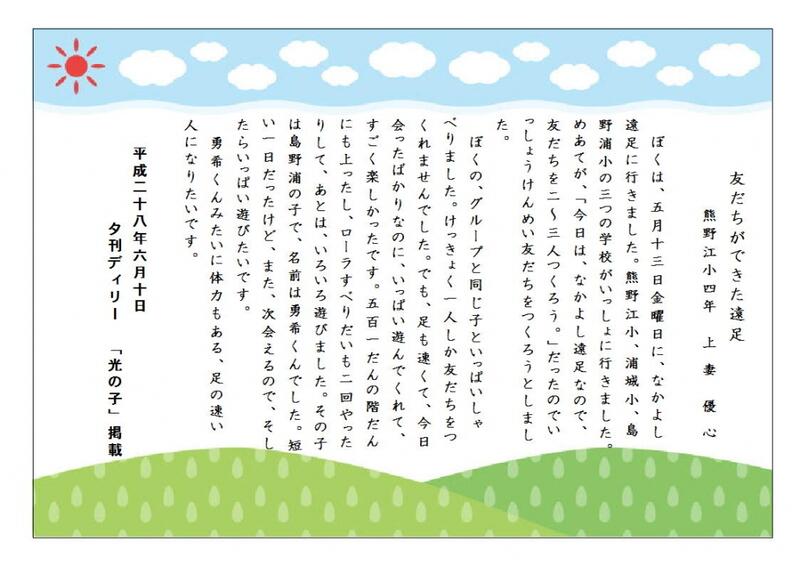 友だちができた遠足
熊野江小四年　上妻　優心
ぼくは、五月十三日金曜日に、なかよし
遠足に行きました。熊野江小、浦城小、島
野浦小の三つの学校がいっしょに行きました。
めあてが、「今日は、なかよし遠足なので、
友だちを二～三人つくろう。」だったのでい
っしょうけんめい友だちをつくろうとしまし
た。
ぼくの、グループと同じ子といっぱいしゃ
べりました。けっきょく一人しか友だちをつ
くれませんでした。でも、足も速くて、今日
会ったばかりなのに、いっぱい遊んでくれて、
すごく楽しかったです。五百一だんの階だん
にも上ったし、ローラすべりだいも二回やった
りして、あとは、いろいろ遊びました。その子
は島野浦の子で、名前は勇希くんでした。短
い一日だったけど、また、次会えるので、そし
たらいっぱい遊びたいです。
勇希くんみたいに体力もある、足の速い
人になりたいです。
平成二十八年六月十日
夕刊ディリー　「光の子」掲載